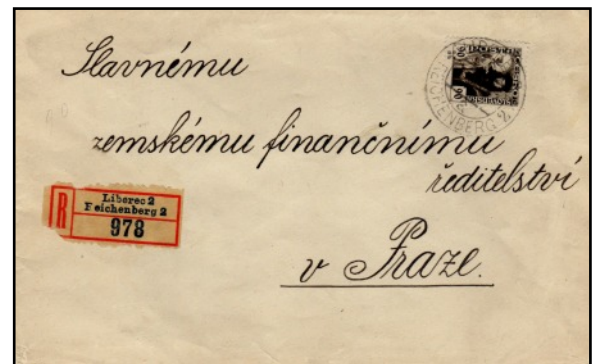 Slavnému
zemskému finančnímu
ředitelství
v Praze.
R
Liberec 2
Reichenberg 2
978
REICHENBERG 2
90
90